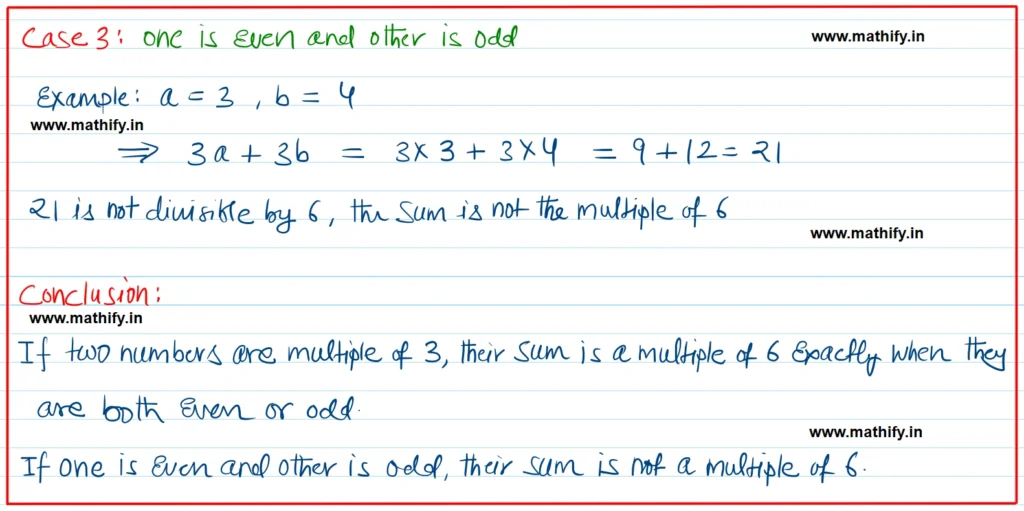 Case 3: one is even and other is odd
www.mathify.in
Example: a = 3 , b = 4
www.mathify.in
⇒ 3a + 3b = 3×3 + 3×4 = 9 + 12 = 21
21 is not divisible by 6, the sum is not the multiple of 6
www.mathify.in
Conclusion:
www.mathify.in
If two numbers are multiple of 3, their sum is a multiple of 6 exactly when they
are both even or odd.
www.mathify.in
If one is even and other is odd, their sum is not a multiple of 6.